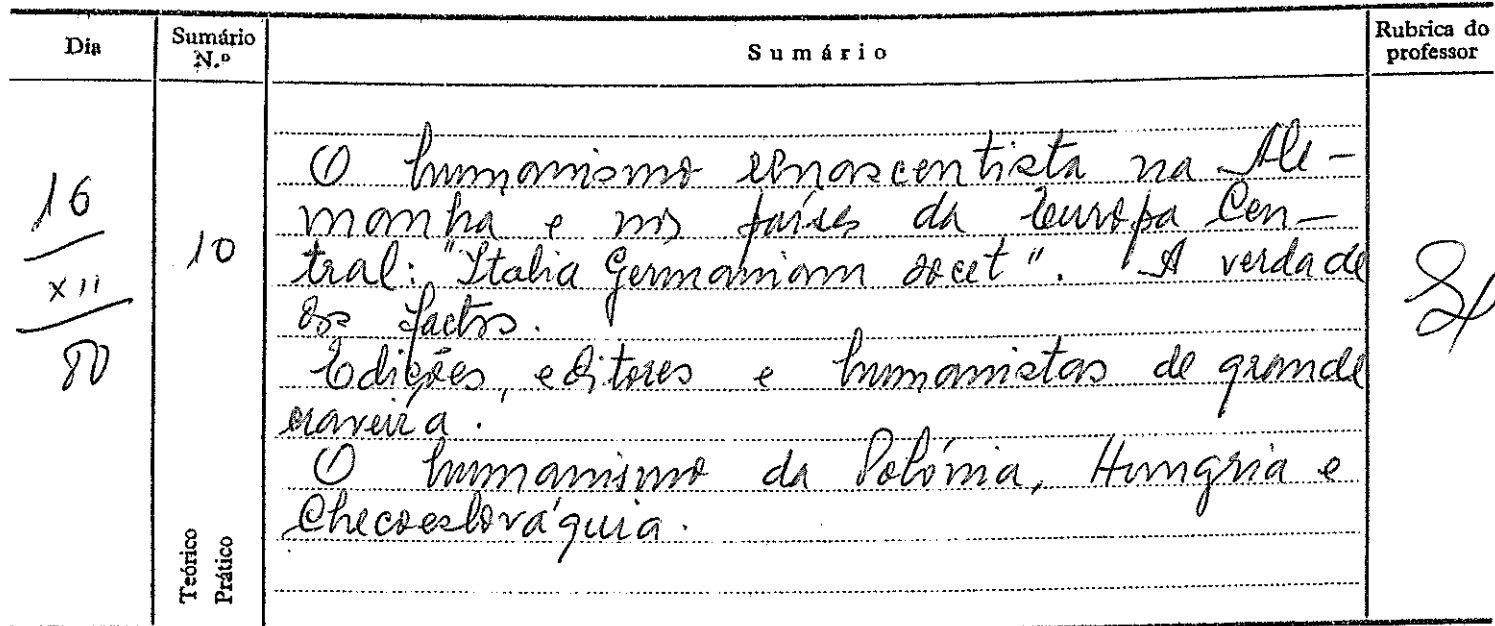 Dia Sumário N.º Sumário Rubrica do professor
16 XII 80
10
O humanismo renascentista na Ale-
manha e nos países da Europa Cen-
tral: "Italia Germaniam docet". A verdade
dos factos.
Edições, editores e humanistas de grande
craveira.
O humanismo da Polónia, Hungria e
Checoeslováquia.
Teórico
Prático